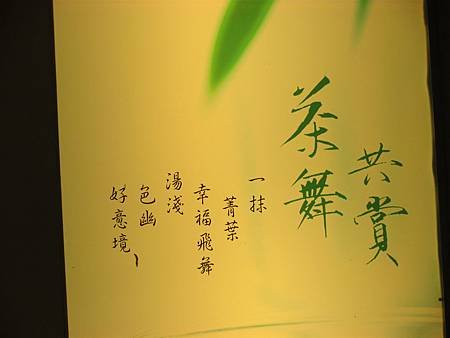 共賞
茶舞
一抹
菁葉
幸福飛舞
湯淺
色幽
好意境~